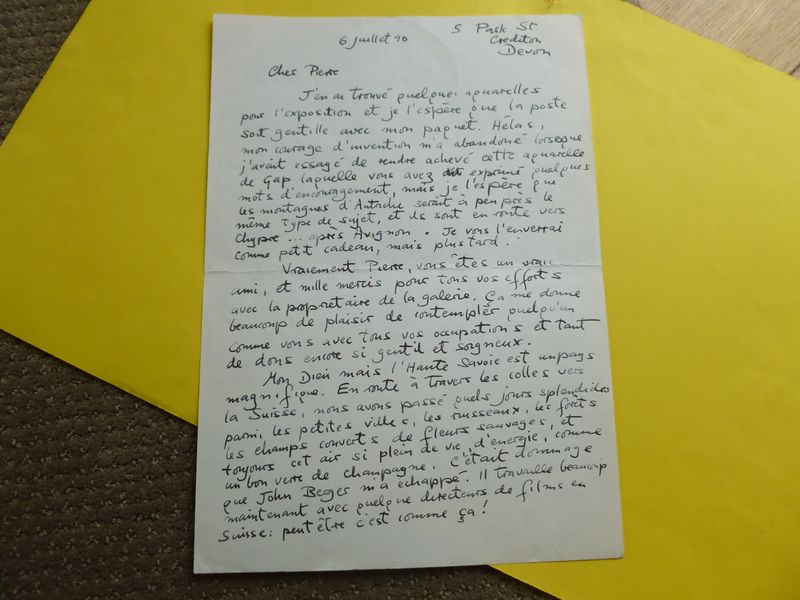 6 Juillet 90
5 Park St
Crediton
Devon
Cher Pierre
J'en ai trouvé quelques aquarelles
pour l'exposition et je l'espère que la poste
soit gentille avec mon paquet. Hélas,
mon courage d'invention m'a abandoné lorseque
j'avait essayé de rendre achevé cette aquarelle
de Gap laquelle vous avez exprimé quelques
mots d'encouragement, mais je l'espère que
les montagnes d'Autriche serait à peu près le
même type de sujet, et ils sont en route vers
Chypre ... après Avignon. Je vous l'enverrai
comme petit cadeau, mais plus tard.
Vraiement Pierre, vous êtes un vraie
ami, et mille mercis pour tous vos efforts
avec la propriétaire de la galérie. Ça me donne
beaucoup de plaisir de contempler quelqu'un
comme vous avec tous vos occupations et tant
de dons encore si gentil et soigneux.
Mon Dieu mais l'Haute Savoie est un pays
magnifique. En route à travers les colles vers
la Suisse, nous avons passé quels jours splendides
parmi les petites villes, les russeaux, les forêts
les champs couverts de fleurs sauvages, et
toujours cet air si plein de vie, d'energie, comme
un bon verre de champagne. C'était dommage
que John Beger m'a échappé. Il travaille beaucoup
maintenant avec quelque directeurs de films en
Suisse: peut être c'est comme ça!